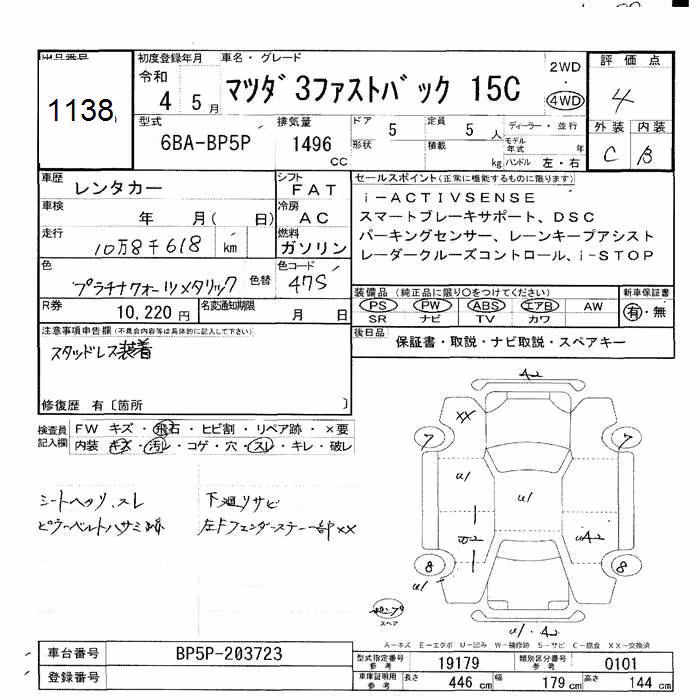 出品番号
1138
初度登録年月
令和
4 5月
車名・グレード
マツダ3ファストバック 15C
2WD
4WD
評価点
4
外装 内装
C B
型式
6BA-BP5P
排気量
1496
CC
ドア
5
形状
定員
5人
積載
kg
ディーラー・並行
モデル年式 年
ハンドル 左・右
車歴
レンタカー
シフト
FAT
車検
年 月( 日)
冷房
AC
走行
10万8千618 km
燃料
ガソリン
色
プラチナクォーツメタリック
色替
色コード
47S
R券
10,220円
名変通知期限
月 日
セールスポイント(正常に機能するものに限ります)
i-ACTIVSENSE
スマートブレーキサポート、DSC
パーキングセンサー、レーンキープアシスト
レーダークルーズコントロール、i-STOP
装備品(純正品に限り○をつけてください)
PS PW ABS エアB AW
SR ナビ TV カワ
新車保証書
有・無
後日品
保証書・取説・ナビ取説・スペアキー
注意事項申告欄(不具合内容等は具体的に記入して下さい)
スタッドレス装着
修復歴 有〔箇所 〕
検査員記入欄
FW キズ・飛石・ヒビ割・リペア跡・×要
内装 キズ・汚れ・コゲ・穴・スレ・キレ・破レ
シートヘタリ、スレ
ピラーベルトハサミ跡
下廻りサビ
左Fフェンダーステー一部XX
A2
XX
7
7
U1
U1
U2
UA2
8
8
U1
U1・A2
スペア
A-キズ E-エクボ U-凹み W-補修跡 S-サビ C-腐食 XX-交換済
車台番号
BP5P-203723
登録番号
型式指定番号 参考
19179
類別区分番号 参考
0101
車庫証明用 参考
長さ 446cm
幅 179cm
高さ 144cm